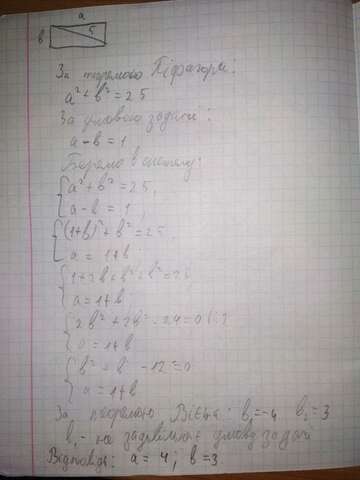 a
в 5
За теоремою Піфагора:
a² + b² = 25
За умовою задачі:
a - b = 1
Беремо в систему:
{ a² + b² = 25,
a - b = 1,
{ (1+b)² + b² = 25,
a = 1+b
{ 1 + 2b + b² + b² = 25
a = 1+b
{ 2b² + 2b - 24 = 0 |:2
a = 1+b
{ b² + b - 12 = 0
a = 1+b
За теоремою Вієта: b₁ = -4 b₂ = 3
b₁ - не задовільняє умову задачі
Відповідь: a = 4; b = 3.